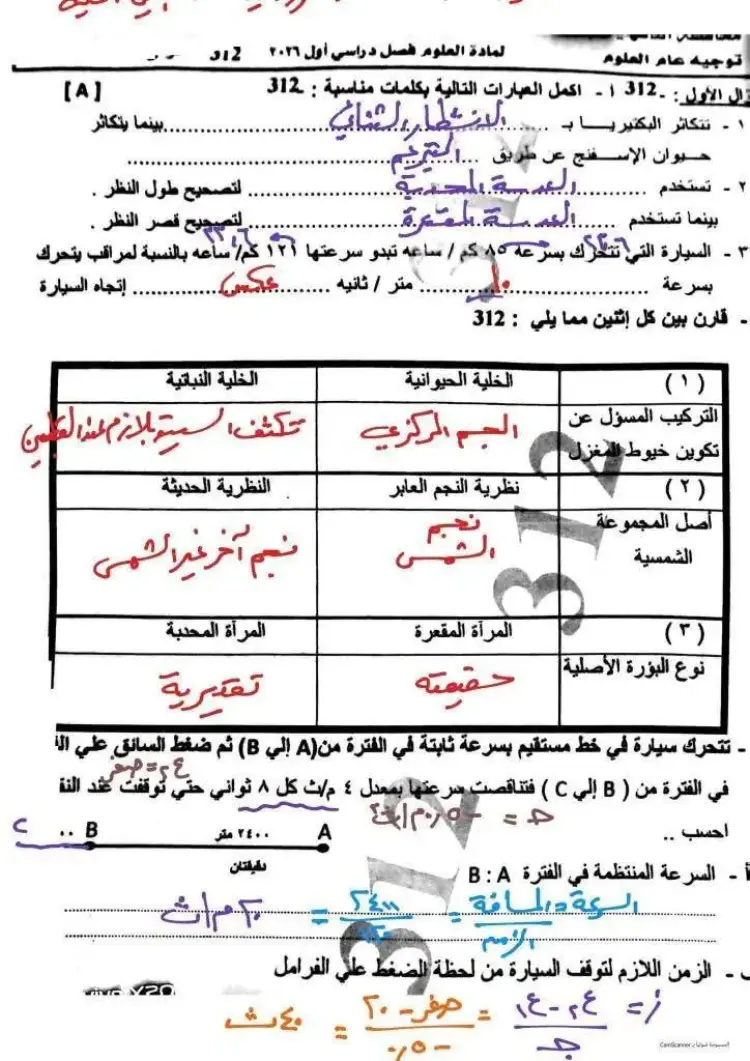 توجيه عام العلوم لمادة العلوم فصل دراسي أول ٢٠٢٦ 312
ال الأول : ـ 312 أ - اكمل العبارات التالية بكلمات مناسبة : ـ 312 [ A ]
١ - تتكاثر البكتيريا بـ .... الانشطار الثنائي .... بينما يتكاثر
حيوان الإسفنج عن طريق .... التبرعم ....
٢ - تستخدم .... العدسة المحدبة .... لتصحيح طول النظر .
بينما تستخدم .... العدسة المقعرة .... لتصحيح قصر النظر .
٣ - السيارة التي تتحرك بسرعة ٨٥ كم / ساعه تبدو سرعتها ١٢١ كم/ ساعه بالنسبة لمراقب يتحرك
بسرعة .... ١٠ .... متر / ثانيه .... عكس .... إتجاه السيارة
- قارن بين كل إثنين مما يلي : 312
( ١ ) الخلية الحيوانية الخلية النباتية
التركيب المسؤل عن تكوين خيوط المغزل الجسم المركزي تكثف السيتوبلازم عند القطبين
( ٢ ) نظرية النجم العابر النظرية الحديثة
أصل المجموعة الشمسية نجم الشمس نجم آخر غير الشمس
( ٣ ) المرآة المقعرة المرآة المحدبة
نوع البؤرة الأصلية حقيقية تقديرية
- تتحرك سيارة في خط مستقيم بسرعة ثابتة في الفترة من(A إلي B) ثم ضغط السائق علي
ع٢ = صفر
في الفترة من ( B إلي C ) فتناقصت سرعتها بمعدل ٤ م/ث كل ٨ ثواني حتي توقفت عند
احسب .. جـ = -٠,٥ م/ث٢
C B ٢٤٠٠ متر A
دقيقتان
أ - السرعة المنتظمة في الفترة B : A
السرعة = المسافة / الزمن = ٢٤٠٠ / ١٢٠ = ٢٠ م/ث
ب - الزمن اللازم لتوقف السيارة من لحظة الضغط علي الفرامل
ز = ع٢ - ع١ / جـ = صفر - ٢٠ / -٠,٥ = ٤٠ ث
CamScanner